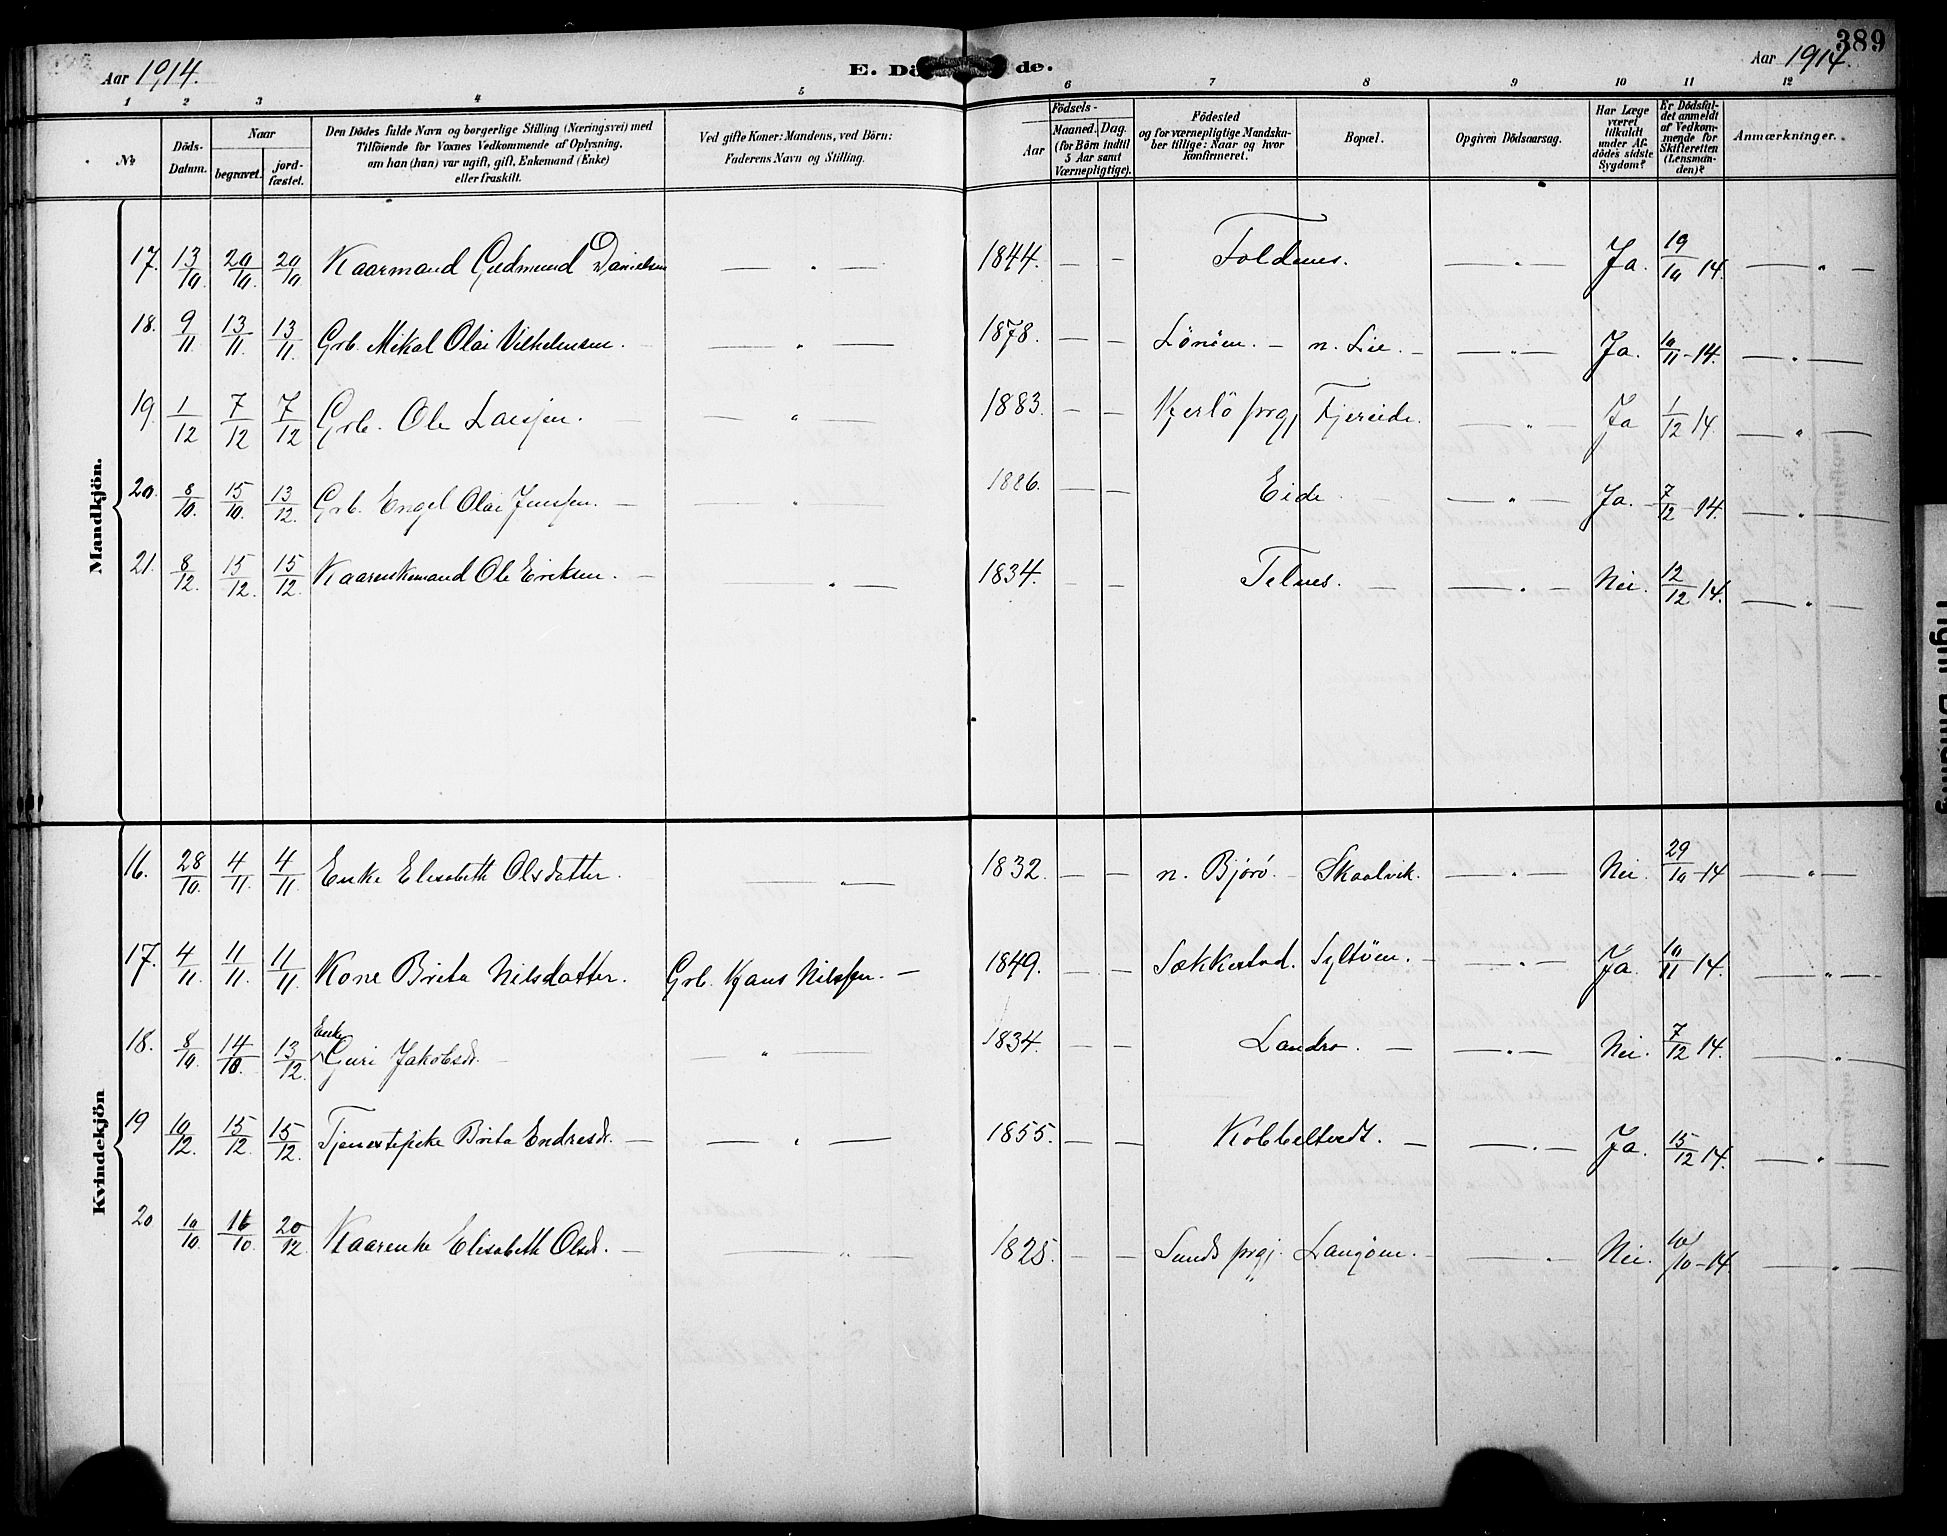 389
Aar 1914.
E. Dö de.
Aar 1914.
1 2 3 4 5 6 7 8 9 10 11 12
No
Döds-Datum.
Naar
begravet.
jord-fæstet.
Den Dödes fulde Navn og borgerlige Stilling (Næringsvei) med
Tilföiende for Voxnes Vedkommende af Oplysning,
om han (hun) var ugift, gift, Enkemand (Enke)
eller fraskilt.
Ved gifte Koner: Mandens, ved Börn:
Faderens Navn og Stilling.
Födsels-
Aar
Maaned. Dag.
(for Börn indtil
5 Aar samt
Værnepligtige).
Födested
og for værnepligtige Mandska-
ber tillige: Naar og hvor
konfirmeret.
Bopæl.
Opgiven Dödsaarsag.
Har Læge
været
tilkaldt
under Af-
dödes sidste
Sygdom?
Er Dödsfal-
det anmeldt
af Vedkom-
mende for
Skifteretten
(Lensman-
den)?
Anmærkninger.
Mandkjön.
17. 13/10. 20/10. 20/10 Kaarmand Gudmund Danielsen — " — 1844. — — Foldnes. — " — Ja. 19/10 14. — " —
18. 9/11. 13/11. 13/11. Grb. Mikal Olai Vilhelmsen. — " — 1878. — — Lönöen. — n. Lie. — — " — Ja. 10/11 - 14. — " —
19. 1/12 7/12 7/12 Grb. Ole Larssen. — " — 1883. — — Kjerlö prgj Fjereide. — " — Ja 1/12 14. — " —
20. 8/10. 15/10. 13/12. Grb. Engel Olai Jenssen. — — " — 1886. — — Eide — " — Ja. 7/12 - 14. — " —
21. 8/12. 15/12. 15/12. Kaarenkemand Ole Eriksen. — — " — 1834. — — Telnes. — — " — Nei. 12/12 14. — " —
Kvindekjön
16. 28/10. 4/11. 4/11. Enke Elisabeth Olsdatter. — " — 1832. — — n. Bjorö. — Skaalvik. — " — Nei. 29/10 - 14 — " —
17. 4/11. 11/11. 11/11. Kone Brita Nilsdatter. Grb. Hans Nilssen. — 1849. — — Sækkestad. Syltöen. — — " — Ja. 10/11 14. — " —
18. 8/10. 14/10. 13/12. Enke Guri Jakobsd. — — " — 1834. — — Landro. — — " — Nei. 7/12 14. — " —
19 10/12. 15/12. 15/12. Tjenestepike Brita Endresd. — — " — 1855. — — Kobbeltvedt. — — " — Ja. 15/12 14. — " —
20 10/10. 16/10. 20/12. Kaarenke Elisabeth Olsd. — — " — 1825. — — Sunds prgj. Langöen. — — " — Nei. 10/10 - 14. — " —